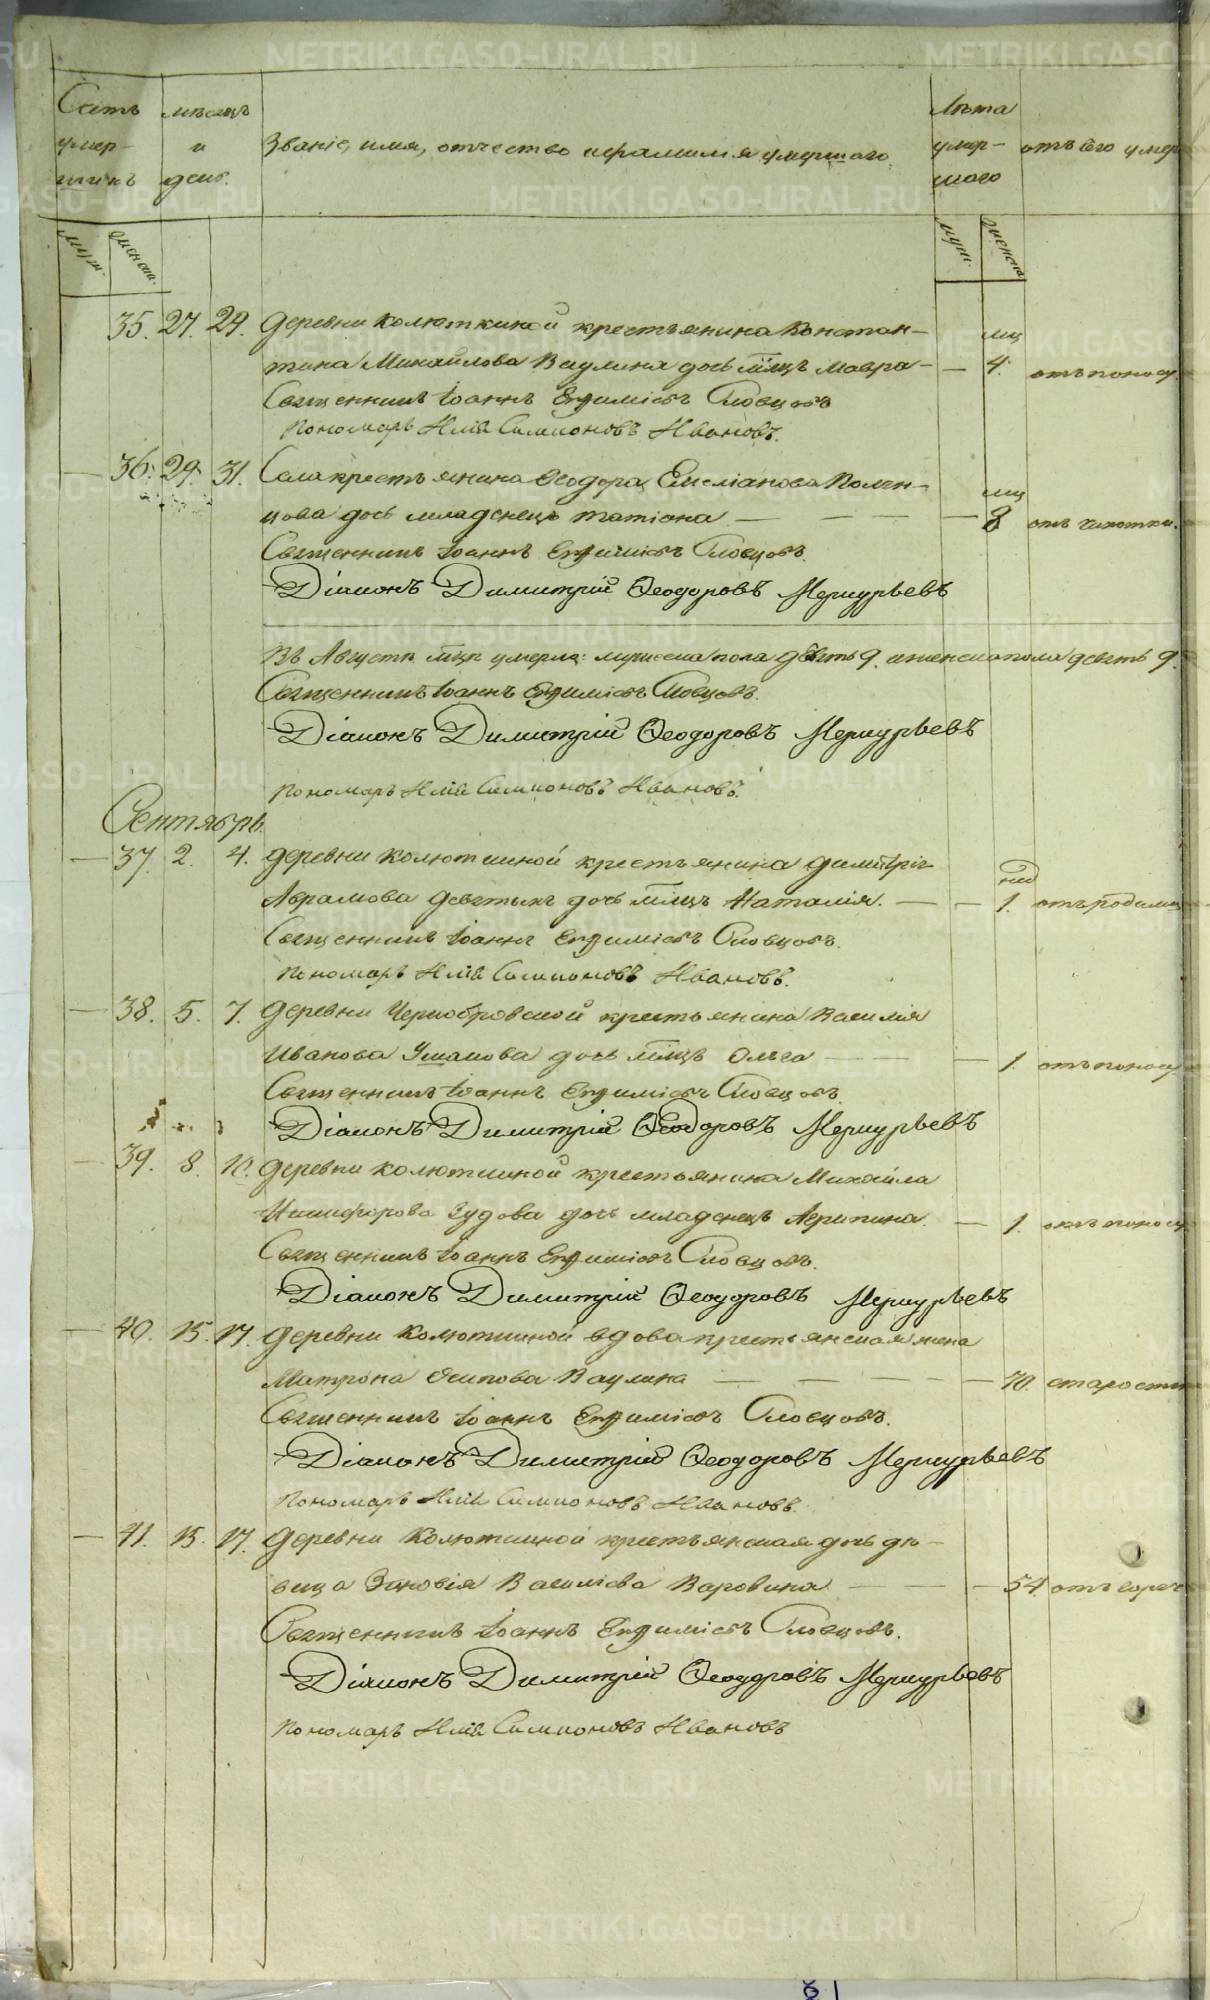 Счетъ умершихъ
мѣсяцъ и день.
Званіе, имя, отчество и фамилія умершаго.
Лѣта умершаго
отъ чего умер
муж. женска.
муж. женска
35. 27. 29. Деревни Колюткиной крестьянина Констан-
мц
тина Михайлова Ваулина дочь млцъ Мавра — 4. отъ поносу.
Священникъ Іоаннъ Евфиміевъ Словцовъ
Пономарь Илія Симионовъ Ивановъ.
— 36. 29. 31. Села крестьянина Ѳеодора Емеліанова
мц
цова дочь младенецъ Татіана — 8 отъ чахотки.
Священникъ Іоаннъ Евфиміевъ Словцовъ.
Діаконъ Димитрій Ѳеодоровъ Меркурьевъ
Въ Августѣ мцѣ умерло: мужеска пола девять 9. и женска пола девять 9.
Священникъ Іоаннъ Евфиміевъ Словцовъ.
Діаконъ Димитрій Ѳеодоровъ Меркурьевъ
Пономарь Илія Симионовъ Ивановъ.
Сентябрь.
— 37. 2. 4. Деревни Колюткиной крестьянина Димитрія
нед
Аврамова Девятыхъ дочь млцъ Наталія. — 1. отъ родимц
Священникъ Іоаннъ Евфиміевъ Словцовъ.
Пономарь Илія Симионовъ Ивановъ.
— 38. 5. 7. Деревни Чернобровской крестьянина Василія
Иванова Ушакова дочь млцъ Ольга — 1. отъ поносу
Священникъ Іоаннъ Евфиміевъ Словцовъ.
Діаконъ Димитрій Ѳеодоровъ Меркурьевъ
— 39. 8. 10. Деревни Колюткиной крестьянина Михайла
Никифорова Зудова дочь младенецъ Агрипина. — 1. отъ поносу
Священникъ Іоаннъ Евфиміевъ Словцовъ.
Діаконъ Димитрій Ѳеодоровъ Меркурьевъ
— 40. 15. 17. Деревни Колюткиной вдова крестьянская жена
Матрона Осипова Ваулина — 70. старости
Священникъ Іоаннъ Евфиміевъ Словцовъ.
Діаконъ Димитрій Ѳеодоровъ Меркурьевъ
Пономарь Илія Симионовъ Ивановъ.
— 41. 15. 17. Деревни Колюткиной крестьянская дочь дѣ-
вица Зиновія Василіева Варовина — 54. отъ гореч
Священникъ Іоаннъ Евфиміевъ Словцовъ.
Діаконъ Димитрій Ѳеодоровъ Меркурьевъ
Пономарь Илія Симионовъ Ивановъ
METRIKI.GASO-URAL.RU